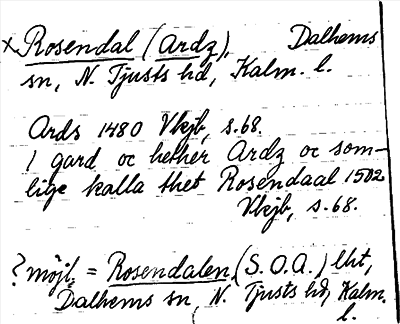 x Rosendal (Ardz), Dalhems
sn, N. Tjusts hd, Kalm. l.
Ards 1480 Vkjb, s. 68.
1 gard oc hether Ardz oc som-
lige kalla thet Rosendaal 1502
Vkjb, s. 68.
? möjl. = Rosendalen, (S.O.A.) lht,
Dalhems sn, N. Tjusts hd, Kalm.
l.